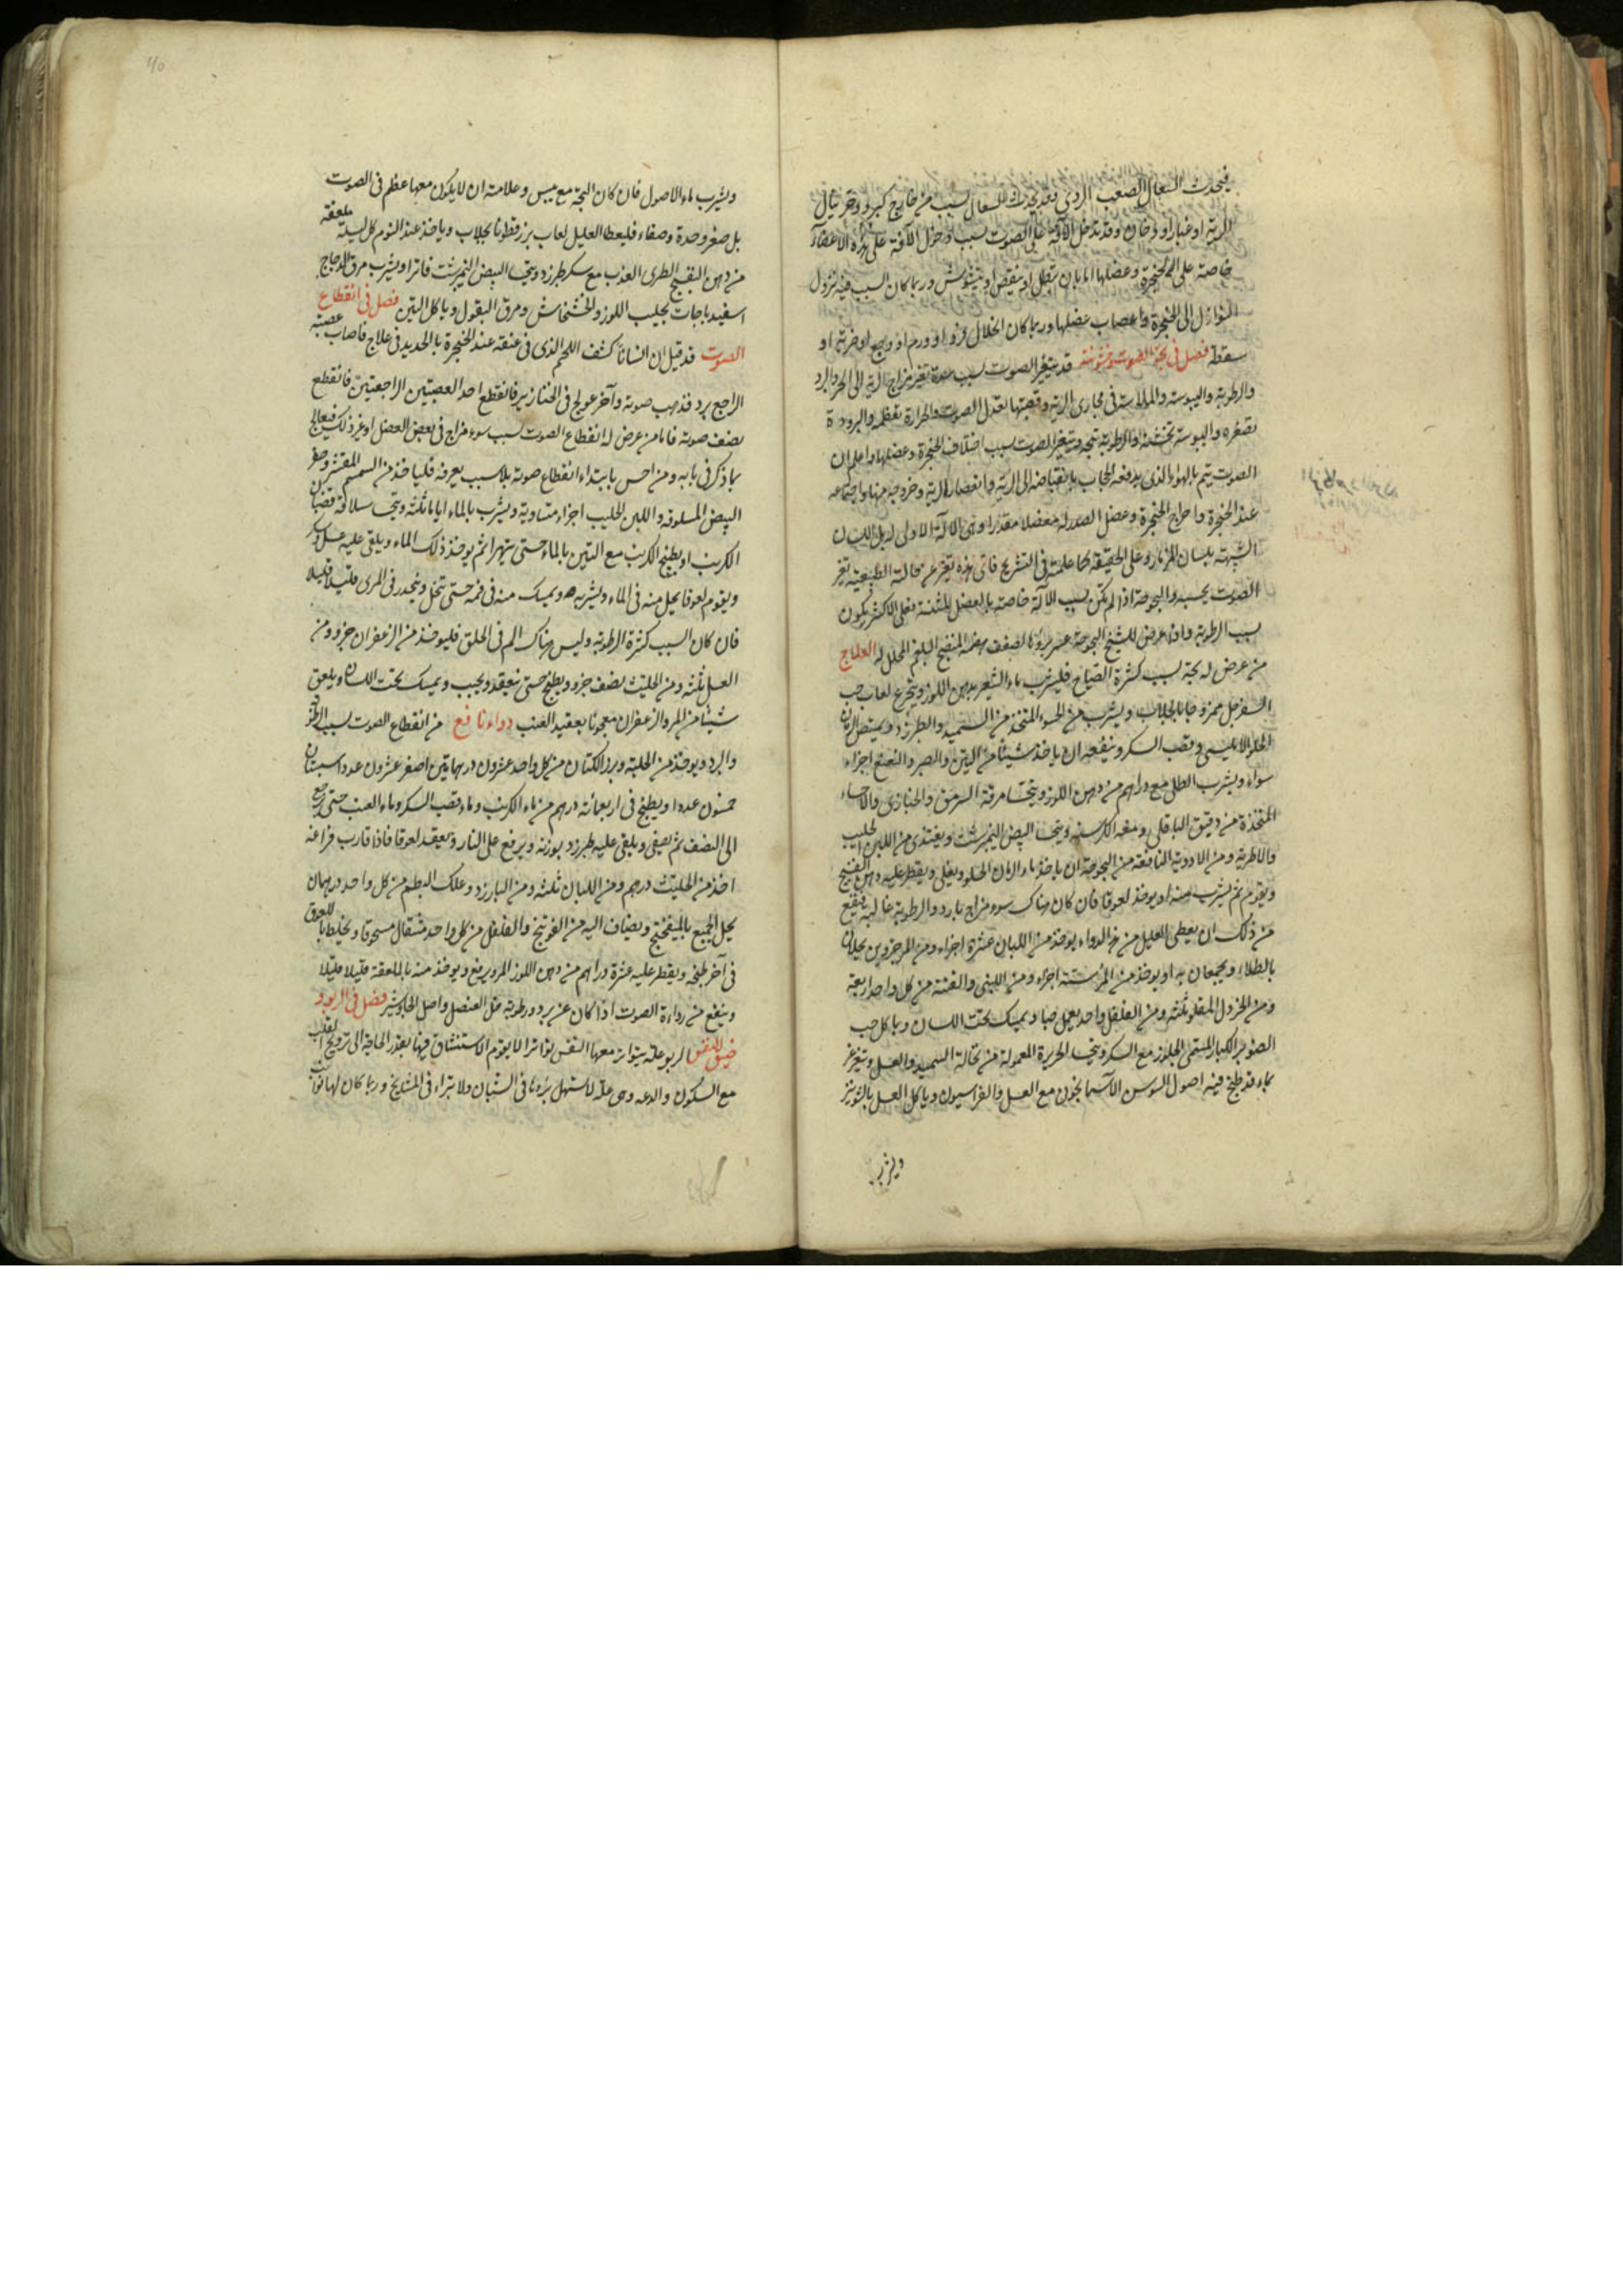 فيحدث السعال الصعب الردي وقد يحدث السعال بسبب من خارج كبرد وحر ينال
الرية او غبار او دخان وقد تدخل الآفة على الصوت بسبب دخول الآفة على هذه الاعضاء
خاصة على الحنجرة وعضلها اما بان تبطل او ينقص او يتشوش وربما كان السبب فيه نزول
النوازل الى الحنجرة واعصاب عضلها وربما كان انحلال فرد او ورم او وجع او ضربة او
سقطة فصل في بحة الصوت وخشونته قد يتغير الصوت بسبب شدة تغير مزاج الرية الى الحر والبرد
والرطوبة واليبوسة والملاسة في مجاري الرية وقصبتها تعدل الصوت والحرارة تعظمه والبرودة
تصغره واليبوسة تخشنه والرطوبة تبحه ويتغير الصوت بسبب اختلاف الحنجرة وعضلها واعلم ان
الصوت يتم بالهواء الذي يدفعه الحجاب بانقباضه الى الرية وانعصار الرية وخروجه منها واجتماعه
عند الحنجرة واخراج الحنجرة وعضل الصدر له مفصلا مقدرا وهي الآلة الاولى له بل اللسان
الشبيه بلسان المزمار وعلى الحقيقة كما علمته في التشريح فاي هذه تغير عن حالته الطبيعية تغير
الصوت بحسبه والبحوحة اذا لم تكن بسبب الآلة خاصة بالعضل المثنية فعلى الاكثر يكون
بسبب الرطوبة واذا عرض للشيخ البحوحة عسر برؤها لضعف هضمه المنضج البلغم المحلل له العلاج
من عرض له بحة بسبب كثرة الصياح فليشرب ماء الشعير بدهن اللوز ويتجرع لعاب حب
السفرجل ممزوجا بالجلاب ويشرب من الحسو المتخذ من السميد والطبرزد ويمتص الرمان
الحلو الامليسي وقصب السكر وينفعه ان ياخذ شيئا من التين والصبر والنعنع اجزاء
سواء ويشرب الطل مع دراهم من دهن اللوز ويتحسا مرقة السرمق والخبازى والاحساء
المتخذة من دقيق الباقلى ومعه الكرسنه ويتحسا البيض النيمرشت ويغتذي من اللبن الحليب
والاطرية ومن الادوية النافعة من البحوحة ان ياخذ ماء الرمان الحلو ويغلى ويقطر عليه دهن البنفسج
ويقوم ثم يشرب منه او يوخذ لعوقا فان كان هناك سوء مزاج بارد والرطوبة غالبة فينفع
من ذلك ان يعطى العليل من هذا الدواء يوخذ من اللبان عشرة اجزاء ومن المر جزوين يحلان
بالطلاء ويجمعان به او يوخذ من المر ستة اجزاء ومن اللبنى والقنة من كل واحد اربعة
ومن الخردل المقلو ثلثه ومن الفلفل واحد يعمل حبا ويمسك تحت اللسان وياكل حب
الصنوبر الكبار المسمى الجلوز مع السكر ويتحسا الحريرة المعمولة من نخالة السميد والعسل ويتغرغر
بماء قد طبخ فيه اصول السوسن الآسمانجوني مع العسل والفراسيون وياكل العسل بالشونيز
ويشرب
ويشرب ماء الاصول فان كان البحة مع يبس وعلامته ان لا يكون معها عظم في الصوت
بل صغر وحدة وصفاء فليعطا العليل لعاب بزرقطونا بجلاب وياخذ عند النوم كل ليلة ملعقة
من دهن البنفسج الطري العذب مع سكر طبرزد ويتحسا البيض النيمرشت فاترا ويشرب مرق الدجاج
اسفيدباجات بحليب اللوز والخشخاش ومرق البقول وياكل التين فصل في انقطاع
الصوت قد قيل ان انسانا كشف اللحم الذي في عنقه عند الحنجرة بالحديد في علاج فاصاب عصبته
الراجع برد فذهب صوته وآخر عولج في الخنازير فانقطع احد العصبتين الراجعتين فانقطع
نصف صوته فاما من عرض له انقطاع الصوت بسبب سوء مزاج في بعض العضل او غير ذلك فيعالج
بما ذكر في بابه ومن احس بابتداء انقطاع صوته بلا سبب يعرفه فلياخذ من السمسم المقشر وصفر
البيض المسلوقة واللبن الحليب اجزاء متساوية ويشرب بالماء اياما ثلثة ويتحسا سلاقة قضبان
الكرنب او يطبخ الكرنب مع التين بالماء حتى يتهرا ثم يوخذ ذلك الماء ويلقى عليه عسل وسكر
ويقوم لعوقا يحل منه في الماء ويشربه ويمسك منه في فمه حتى تنحل وينحدر في المرى قليلا قليلا
فان كان السبب كثرة الرطوبة وليس هناك الم في الحلق فليوخذ من الزعفران جزو ومن
العسل ثلثة ومن الحلتيت نصف جزو ويطبخ حتى ينعقد ويحبب ويمسك تحت اللسان ويلعق
شيئا من المر والزعفران معجونا بعقيد العنب دواء نافع من انقطاع الصوت بسبب الرطوبة
والبرد ويوخذ من الحلبة وبزر الكتان من كل واحد عشرون درهما تين اصفر عشرون عددا سبستان
خمسون عددا ويطبخ في اربعمائة درهم من ماء الكرنب وماء قصب السكر وماء العنب حتى يرجع
الى النصف ثم يصفى ويلقى عليه طبرزد بوزنه ويرفع على النار وتعقد لعوقا فاذا قارب فراغه
اخذ من الحلتيت درهم ومن اللبان ثلثه ومن البارزد وعلك البطم من كل واحد درهمان
يحل الجميع بالميفختج ويضاف اليه من الفوتنج والفلفل من كل واحد مثقال مسحوقا ويخلط باللعوق
في آخر طبخه ويقطر عليه عشرة دراهم من دهن اللوز المر ويرفع ويوخذ منه بالملعقة قليلا قليلا
وينفع من رداءة الصوت اذا كان عن برد ورطوبة خل العنصل واصل الجاوشير فصل في الربو و
ضيق النفس الربو علة يتواتر معها النفس تواترا لا يقوم الاستنشاق فيها بقدر الحاجة الى ترويح القلب
مع السكون والدعه وهي علة لا تسهل برءها في الشبان ولا تبراء في المشايخ وربما كان لها نوائب